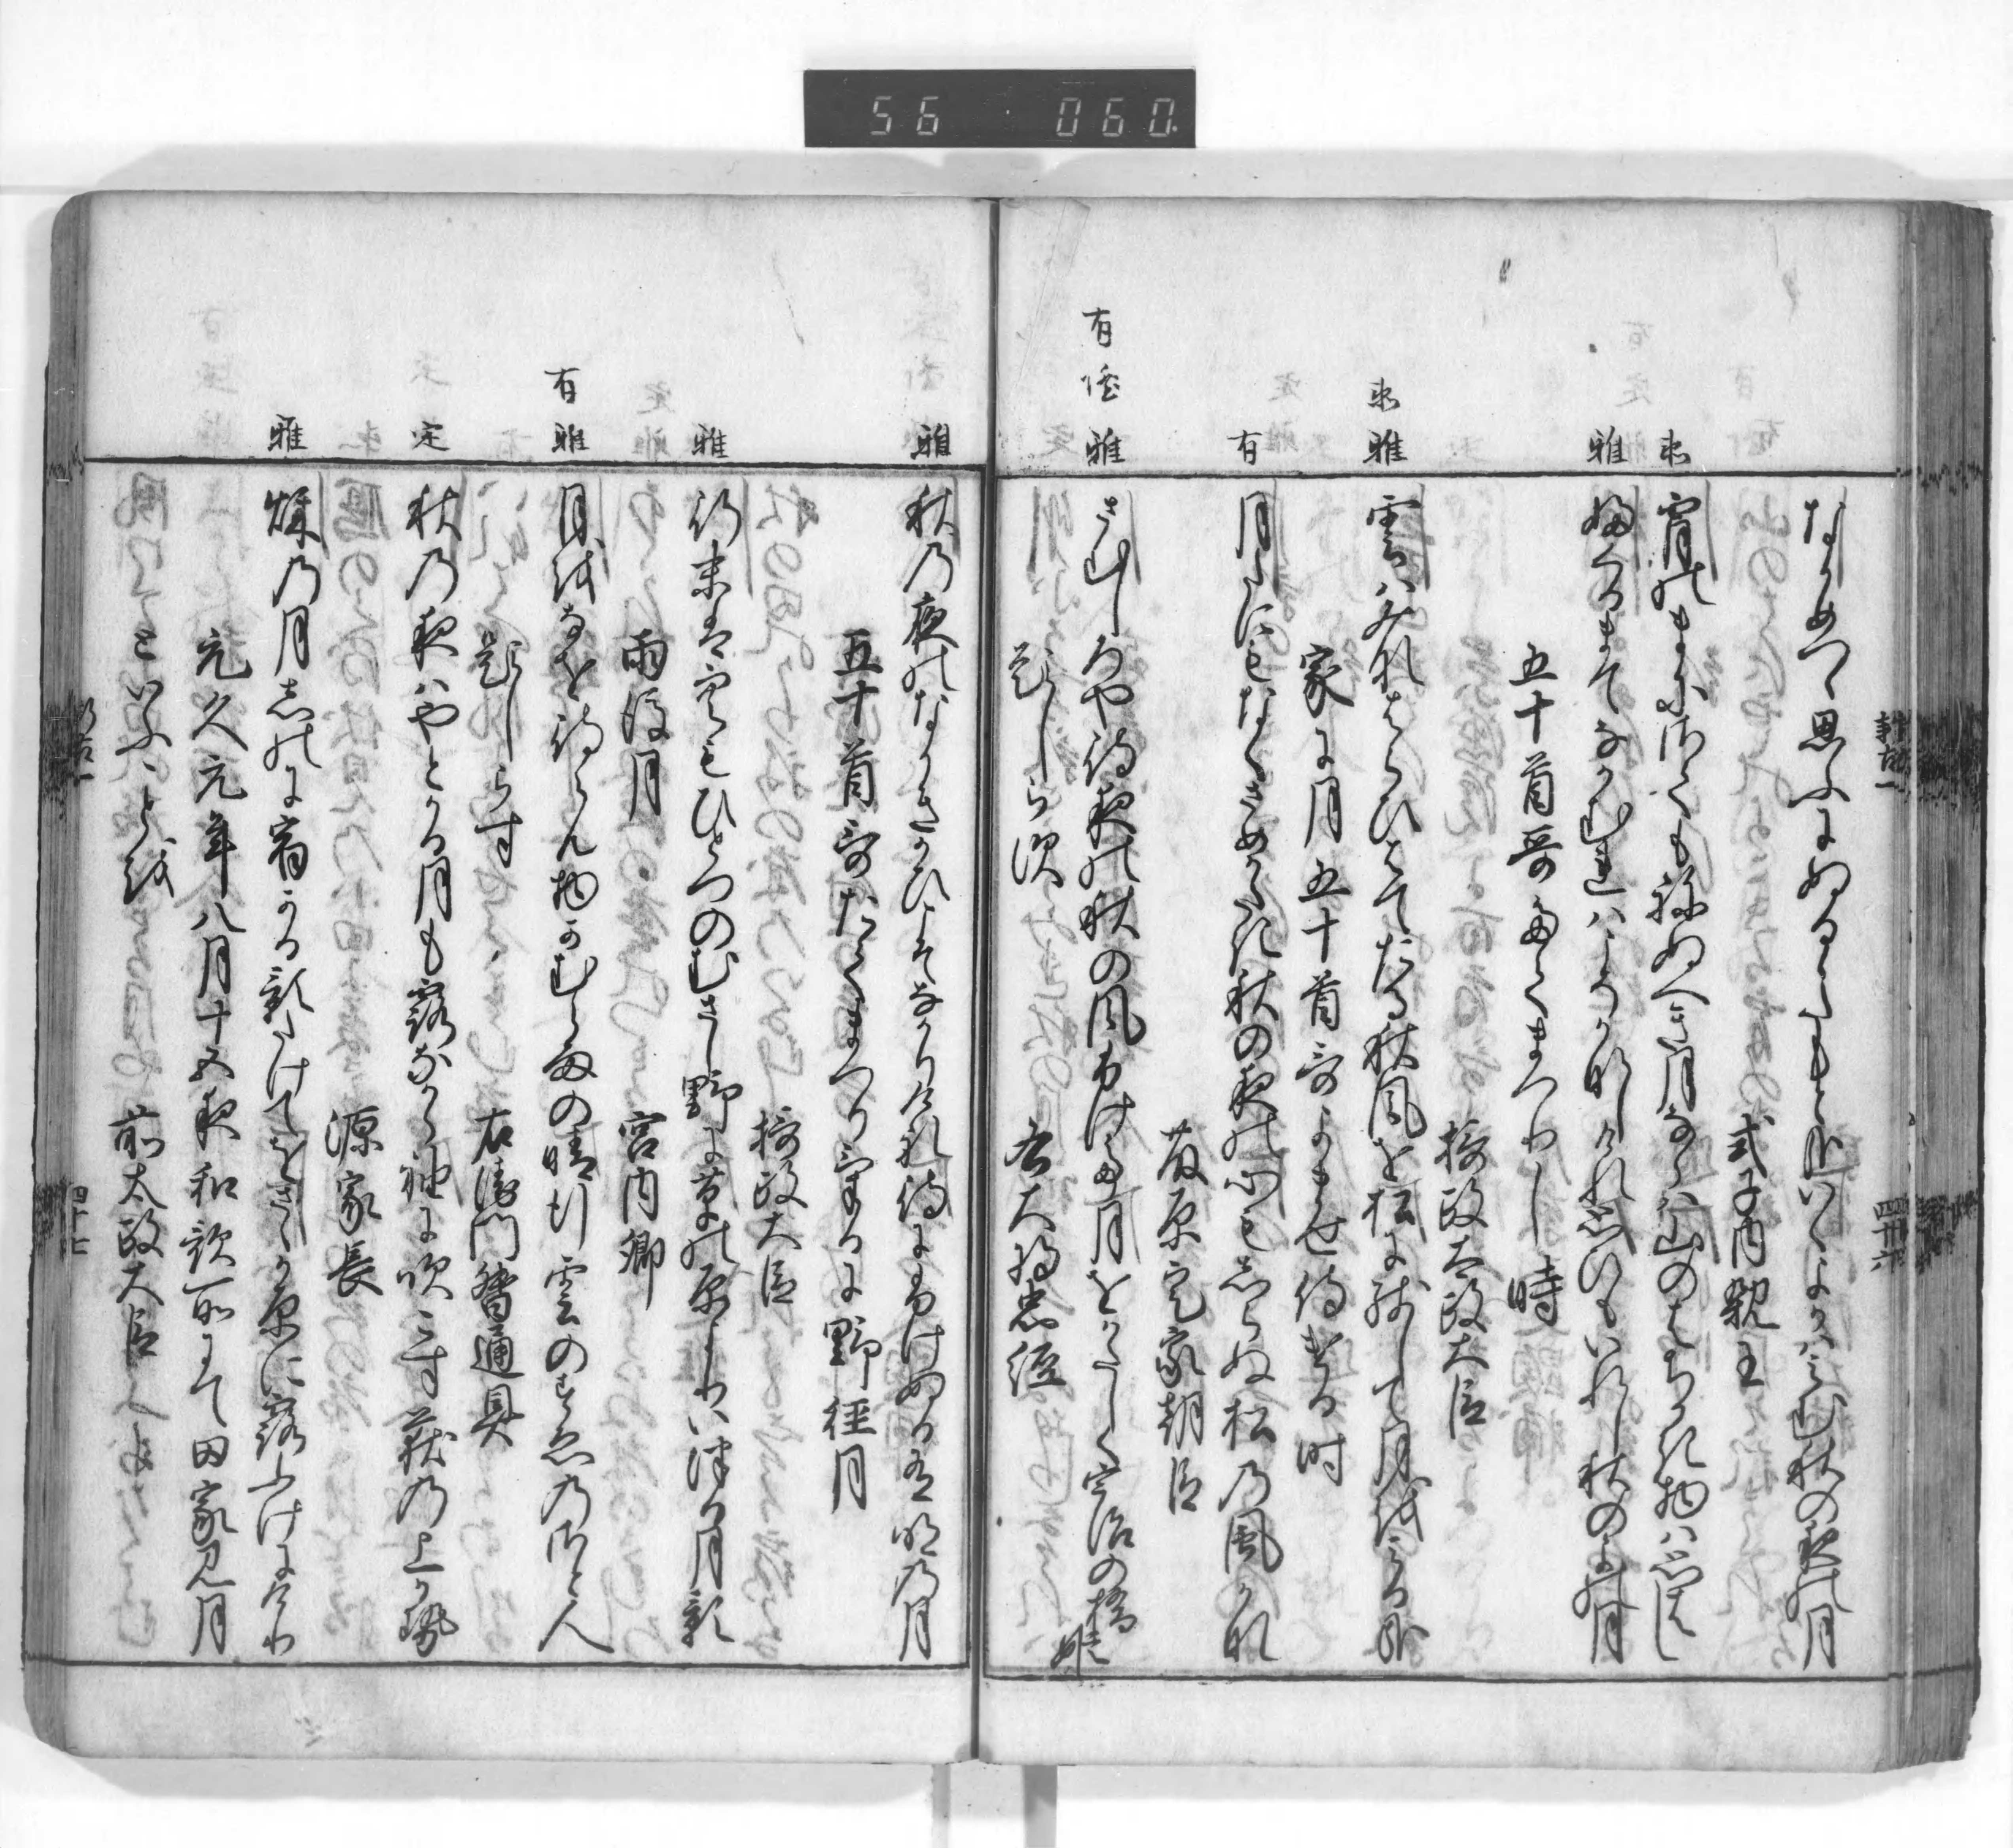 なかめつゝ思ふにぬるゝたもと哉いくよかはみむ秋の夜の月
式子内親王
来
宵のまにさても寝ぬへき月ならは山のはちかき物は思はし
雅
ふくるまてなかむれはこそかなしけれ思ひもいれし秋のよの月
五十首哥たてまつりし時
摂政太政大臣
来雅
雲はみなはらひはてたる秋風を松に残して月をみる哉
家に月五十首哥よませ侍ける時
有
月たにもなくさめかたき秋の夜の心もしらぬ松の風かな
藤原定家朝臣
有隆雅
さむしろや待夜の秋の風ふけて月をかたしく宇治の橋姫
題しらす
右大将忠経
雅
秋の夜のなかきかひこそなかりけれ待にふけぬる有明の月
五十首哥たてまつりけるに野径月
摂政大臣
雅
行末は空もひとつのむさし野に草の原よりいつる月影
雨後月
宮内卿
有雅
月をなを待らん物かむら雨の晴行雲のすゑのさと人
題しらす
右衛門督通具
定
秋の夜はやとかる月も露なから袖に吹こす荻の上かせ
源家長
雅
秋の月しのに宿かる影たけてをさゝか原に露ふけにけり
元久元年八月十五夜和歌所にて田家見月
といふことを
前太政大臣
四十七
56 060